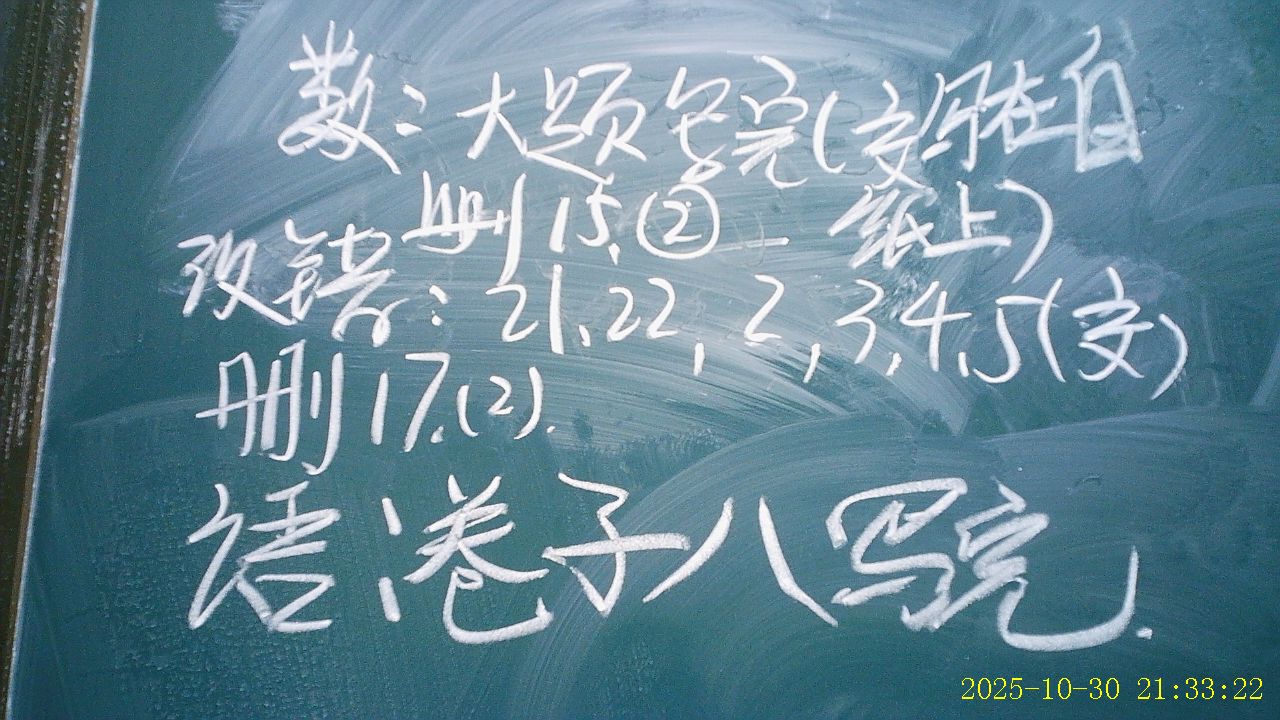 数：大题写完（交写在白
删15.② 纸上）
改错：21.22,2,3,4,5(交)
删17.(2).
语：卷子八写完.
2025-10-30 21:33:22